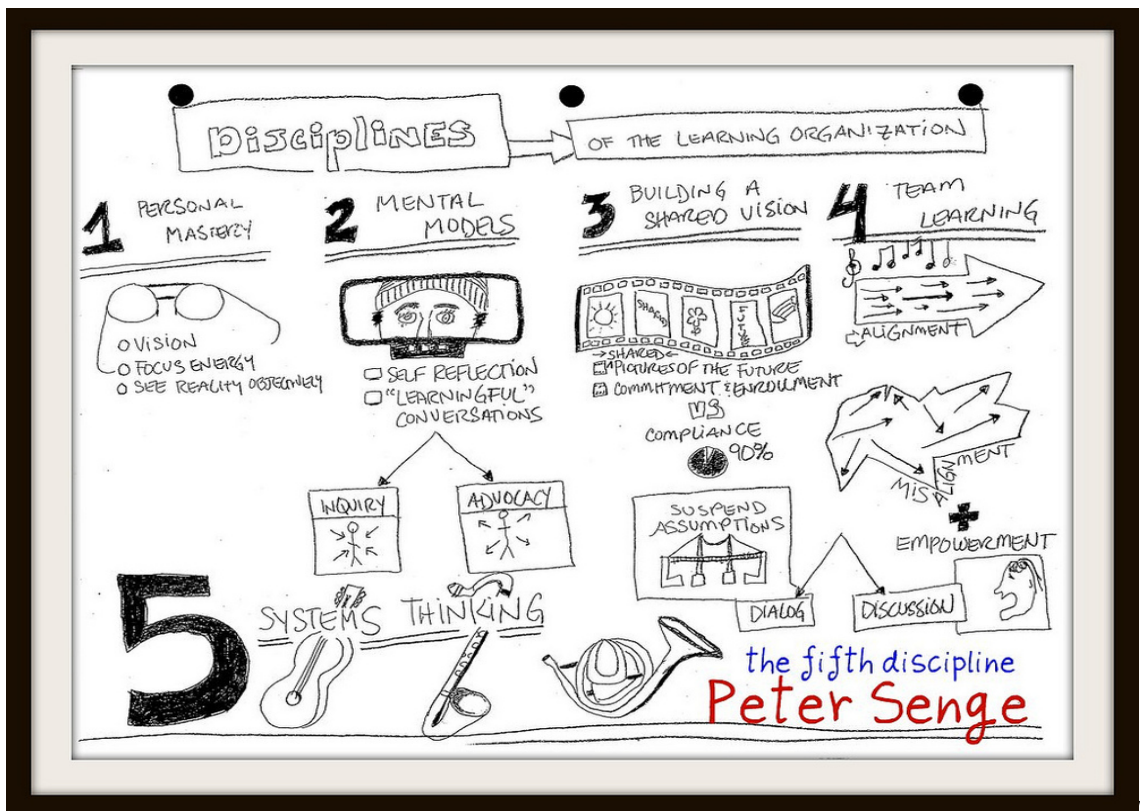 DISCIPLINES
OF THE LEARNING ORGANIZATION
1 PERSONAL
MASTERY
VISION
FOCUS ENERGY
SEE REALITY OBJECTIVELY
2 MENTAL
MODELS
SELF REFLECTION
"LEARNINGFUL"
CONVERSATIONS
INQUIRY
ADVOCACY
3 BUILDING A
SHARED VISION
SHARED
FUTURE
SHARED
PICTURES OF THE FUTURE
COMMITMENT & ENROLLMENT
VS
COMPLIANCE
90%
4 TEAM
LEARNING
ALIGNMENT
MISALIGNMENT
EMPOWERMENT
SUSPEND
ASSUMPTIONS
DIALOG
DISCUSSION
5 SYSTEMS THINKING
the fifth discipline
Peter Senge